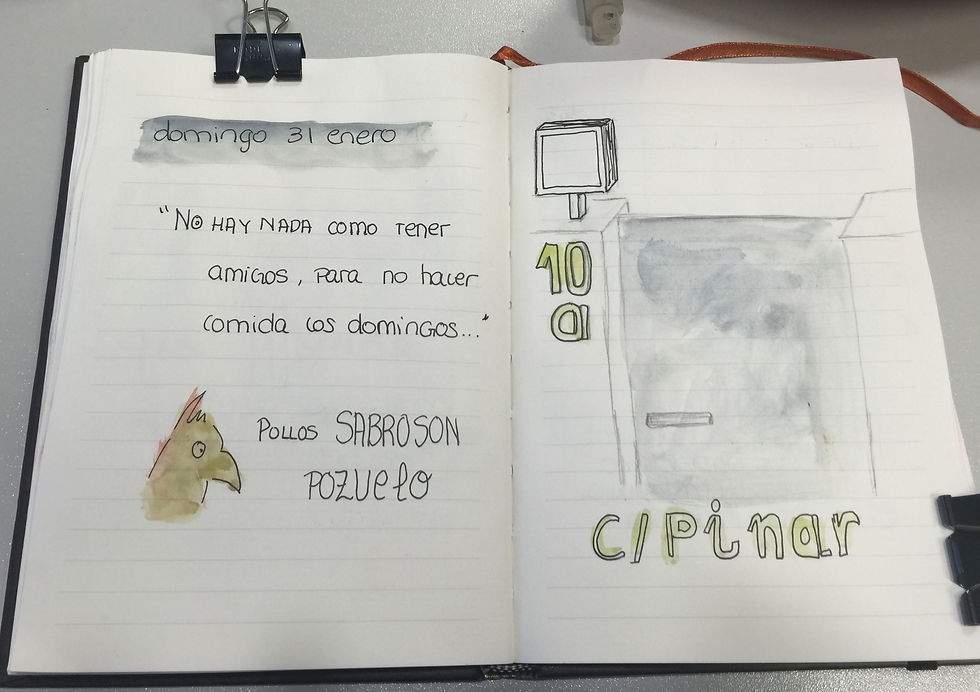 domingo 31 enero
"No HAY NADA como tener
amigos, para no hacer
comida los domingos..."
Pollos SABROSON
POZUelo
10
a
c/Pinar